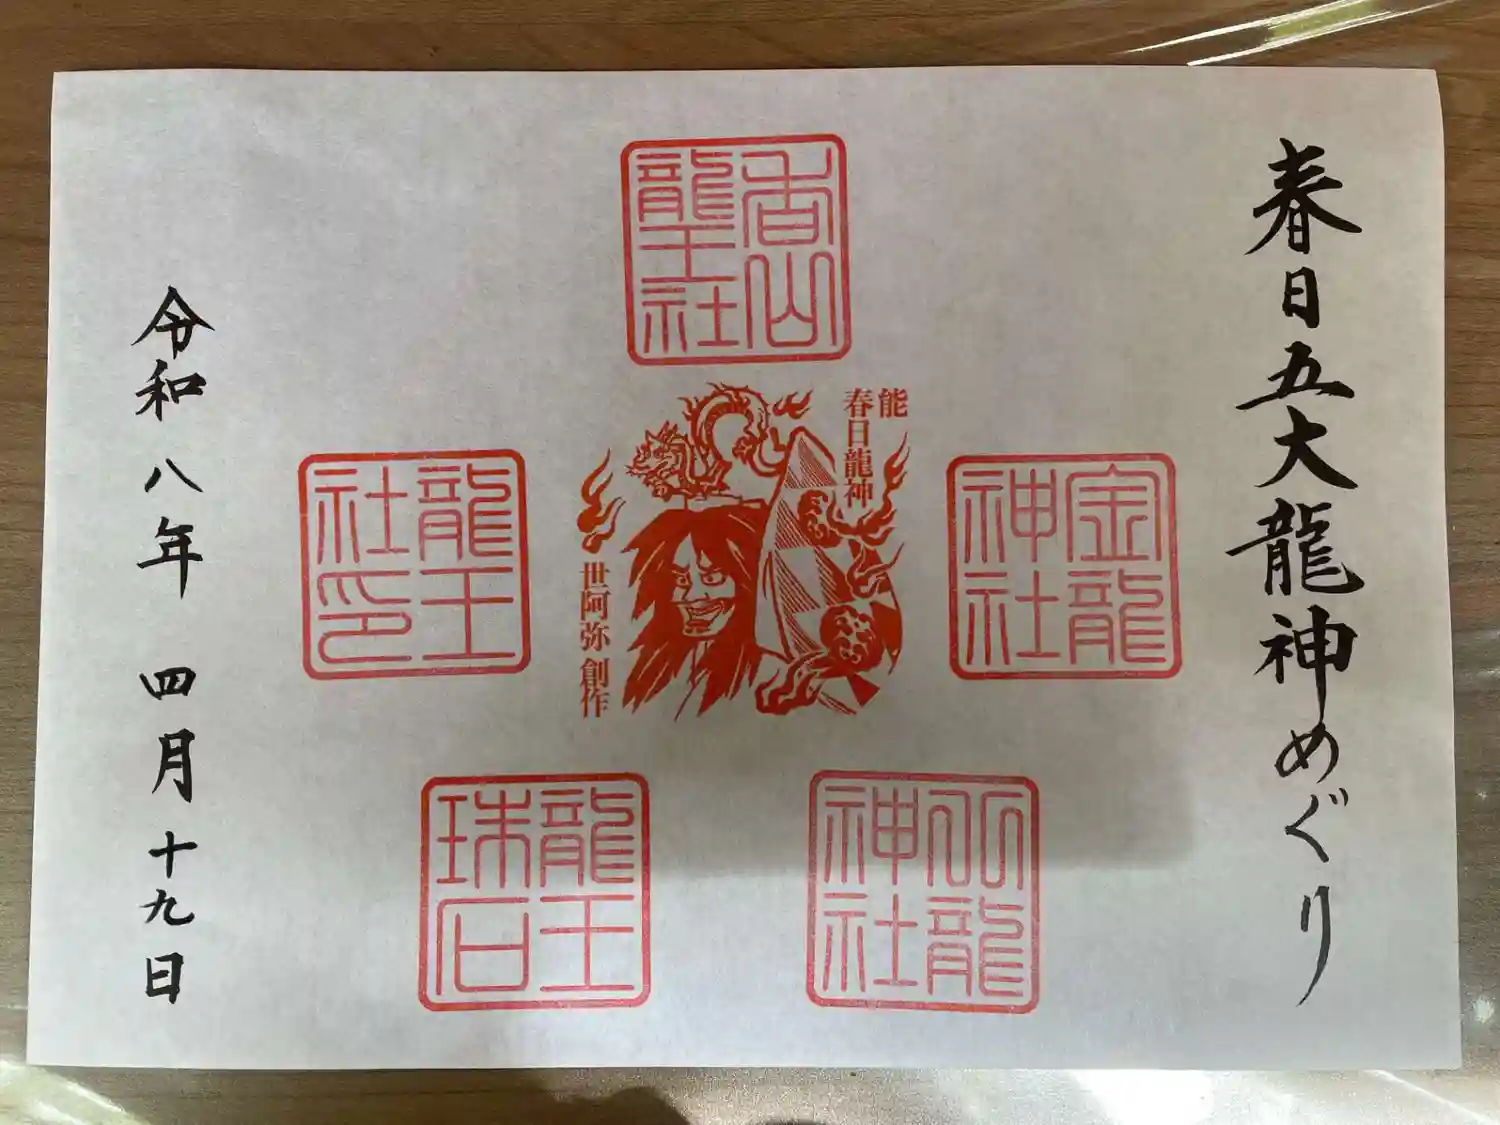 春日五大龍神めぐり
香山
龍王社
金龍
神社
能
春日龍神
世阿弥 創作
龍王
社印
龍
神社
龍王
珠石
令和八年 四月十九日